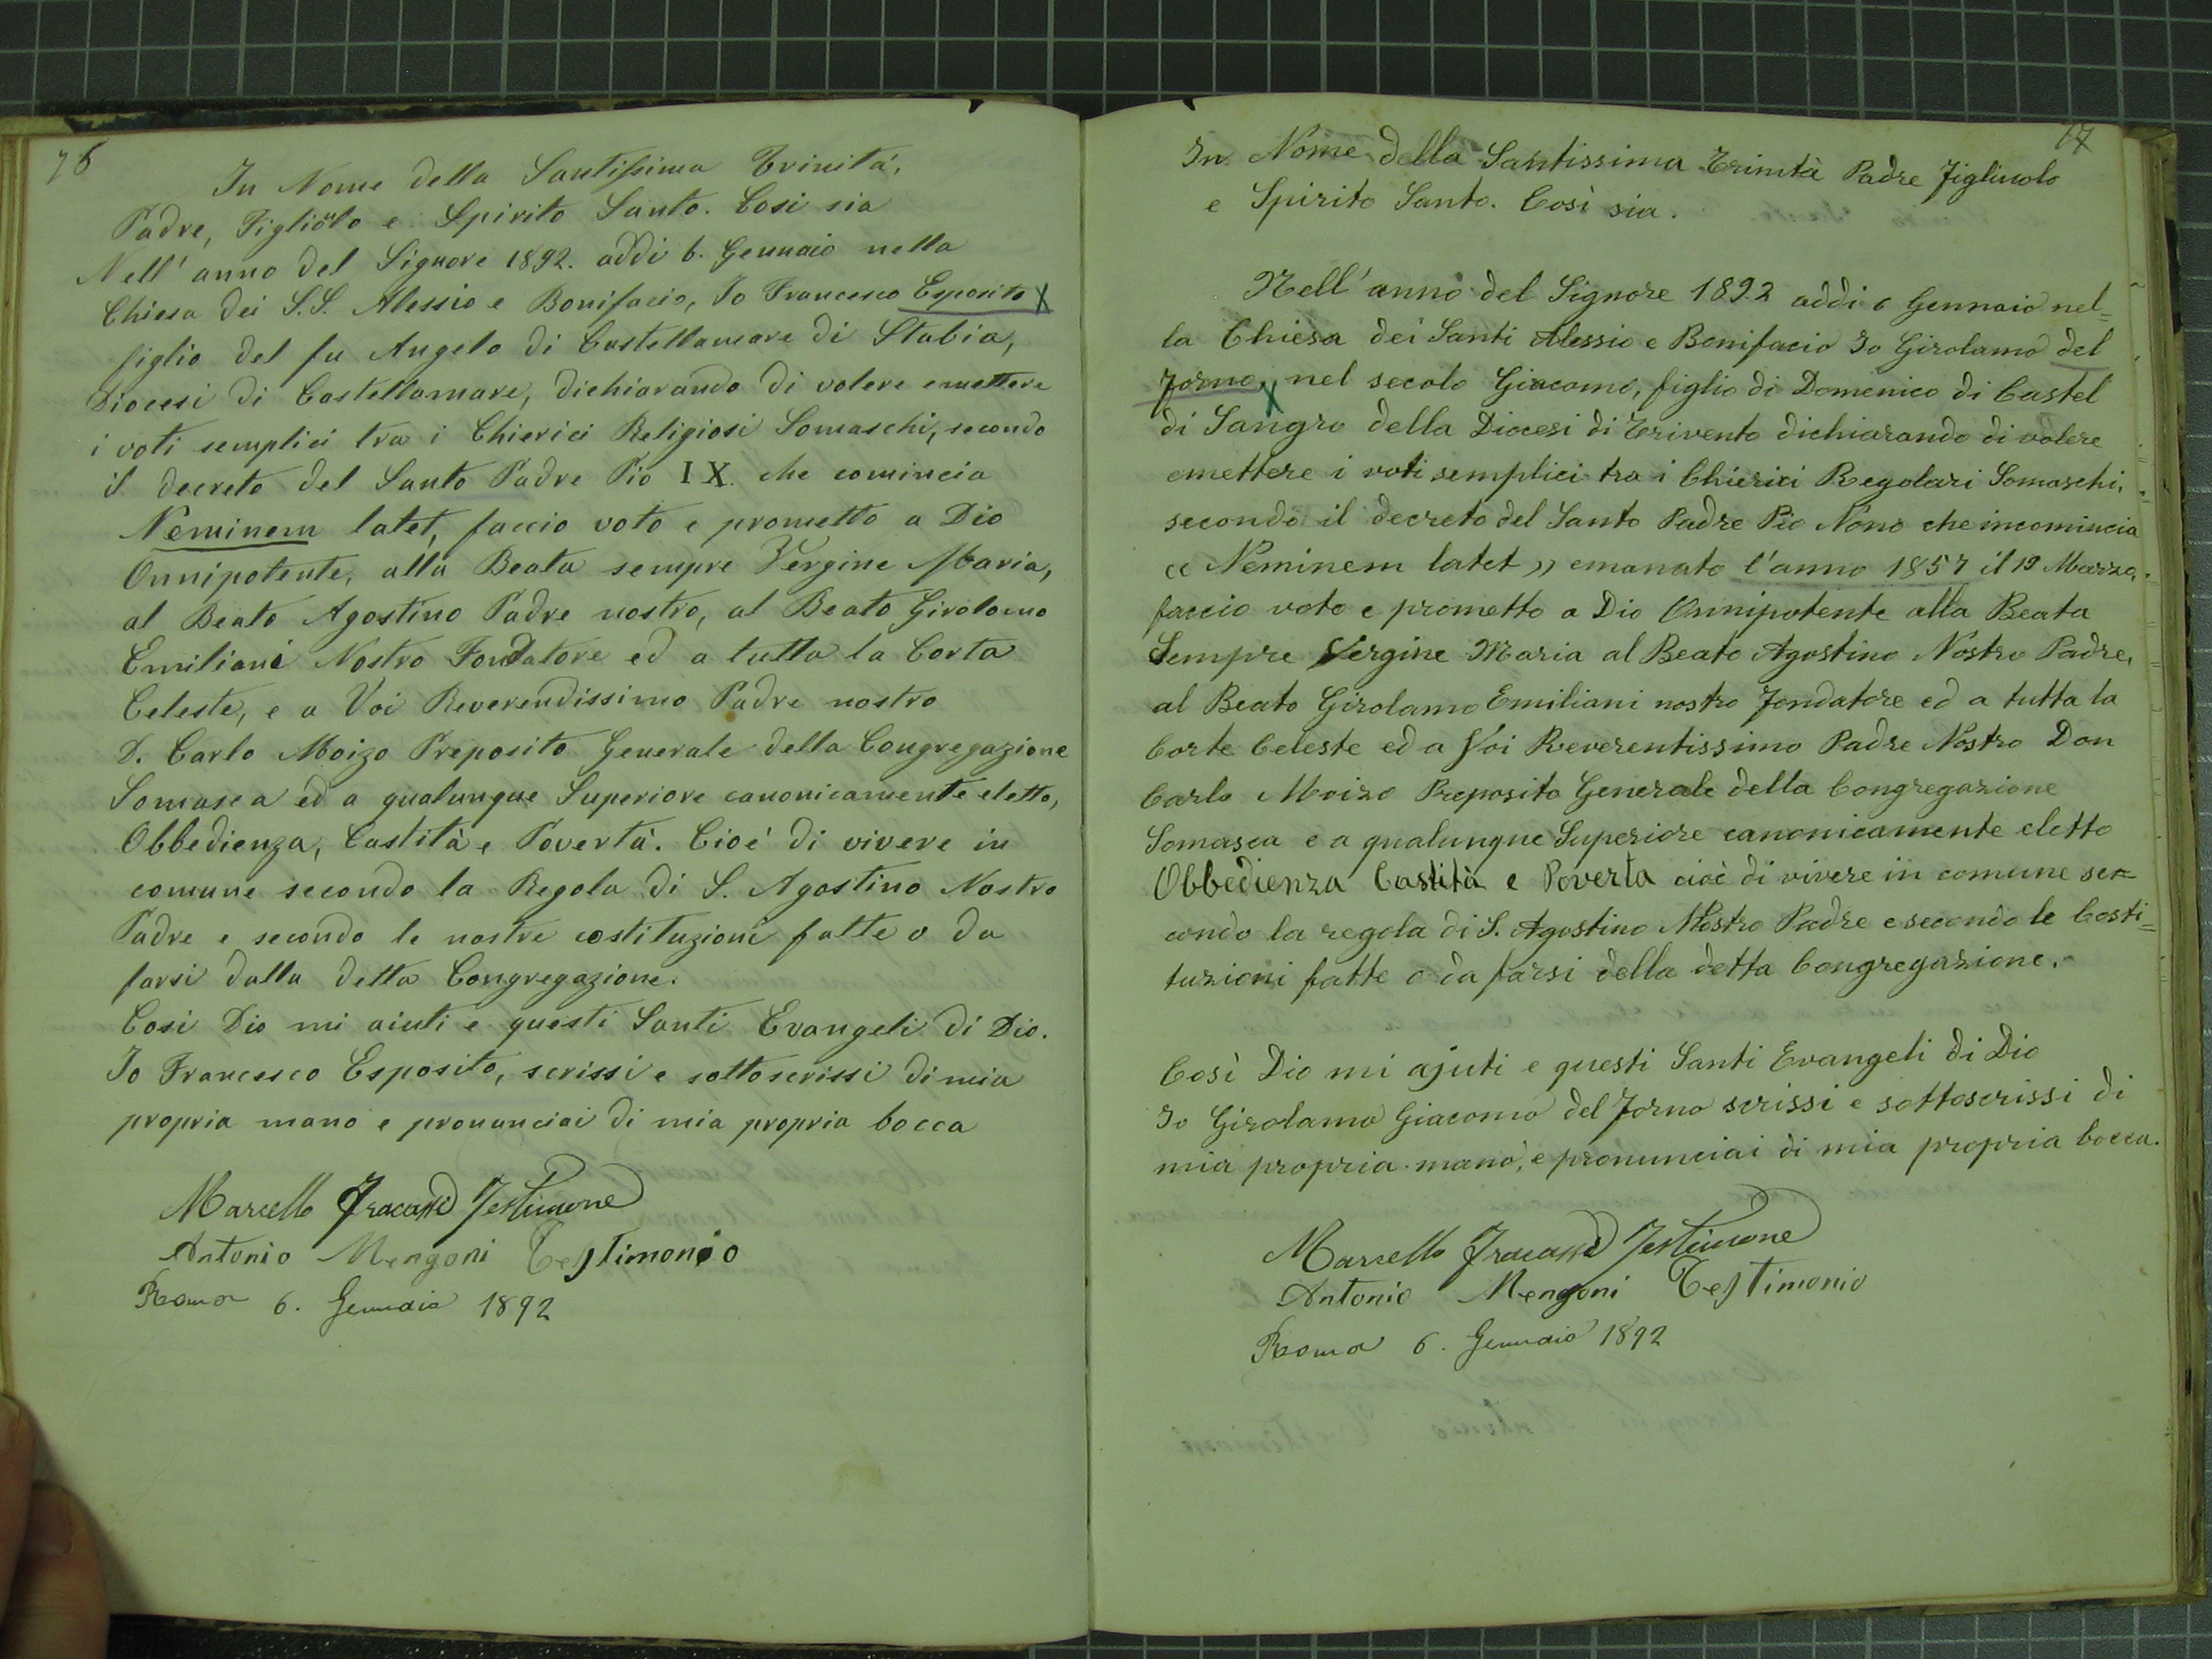 76
In Nome della Santissima Trinità,
Padre, Figliolo e Spirito Santo. Così sia
Nell' anno del Signore 1892. addì 6. Gennaio nella
Chiesa dei S.S. Alessio e Bonifacio, Io Francesco Esposito X
figlio del fu Angelo di Castellamare di Stabia,
Diocesi di Castellamare, dichiarando di volere emettere
i voti semplici tra i Chierici Religiosi Somaschi, secondo
il decreto del Santo Padre Pio IX. che comincia
Neminem latet, faccio voto e prometto a Dio
Onnipotente, alla Beata sempre Vergine Maria,
al Beato Agostino Padre nostro, al Beato Girolamo
Emiliani Nostro Fondatore ed a tutta la Corta
Celeste, e a Voi Reverendissimo Padre nostro
D. Carlo Moizo Preposito Generale della Congregazione
Somasca ed a qualunque Superiore canonicamente eletto,
Obbedienza, Castità e Povertà. Cioè di vivere in
comune secondo la Regola di S. Agostino Nostro
Padre e secondo le nostre costituzioni fatte o da
farsi dalla detta Congregazione.
Così Dio mi aiuti e questi Santi Evangeli di Dio.
Io Francesco Esposito, scrissi e sottoscrissi di mia
propria mano e pronunciai di mia propria bocca
Marcello Fracassi Testimone
Antonio Mengoni Testimonio
Roma 6. Gennaio 1892
In Nome della Santissima Trinità Padre Figliuolo
e Spirito Santo. Così sia.
Nell' anno del Signore 1892 addì 6 Gennaio nel=
la Chiesa dei Santi Alessio e Bonifacio Io Girolamo del
Forno X nel secolo Giacomo, figlio di Domenico di Castel
di Sangro della Diocesi di Trivento dichiarando di volere
emettere i voti semplici tra i Chierici Regolari Somaschi,
secondo il decreto del Santo Padre Pio Nono che incomincia
« Neminem latet » emanato l'anno 1857 il 19 Marzo,
faccio voto e prometto a Dio Onnipotente alla Beata
Sempre Vergine Maria al Beato Agostino Nostro Padre,
al Beato Girolamo Emiliani nostro Fondatore ed a tutta la
Corte Celeste ed a Voi Reverentissimo Padre Nostro Don
Carlo Moizo Preposito Generale della Congregazione
Somasca e a qualunque Superiore canonicamente eletto
Obbedienza Castità e Poverta cioè di vivere in comune se=
condo la regola di S. Agostino Nostro Padre e secondo le Costi=
tuzioni fatte o da farsi della detta Congregazione.
Così Dio mi ajuti e questi Santi Evangeli di Dio
Io Girolamo Giacomo del Forno scrissi e sottoscrissi di
mia propria mano, e pronunciai di mia propria bocca.
Marcello Fracassi Testimone
Antonio Mengoni Testimonio
Roma 6. Gennaio 1892